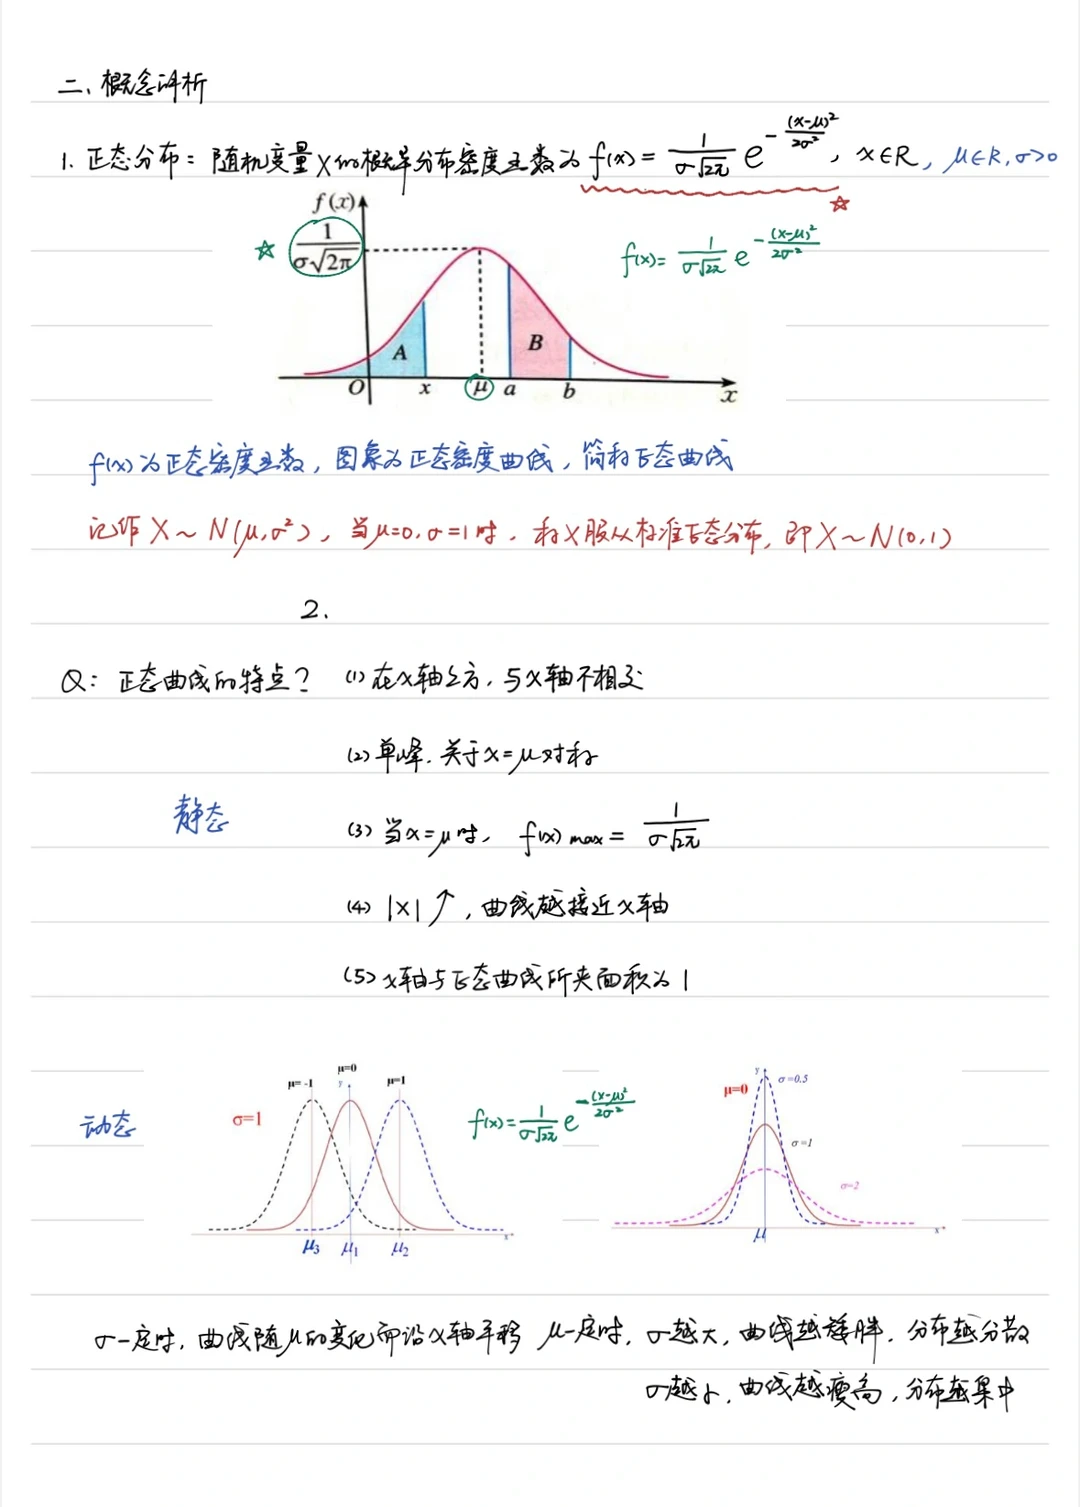 二、概念评析
1. 正态分布：随机变量X的概率分布密度函数为 f(x)= 1/(σ√2π) e^(-(x-μ)²/2σ²), x∈R, μ∈R, σ>0
f(x)
☆ 1/(σ√2π) f(x)= 1/(σ√2π) e^(-(x-μ)²/2σ²) ☆
A B
O x μ a b x
f(x)为正态密度函数，图象为正态密度曲线，简称正态曲线
记作 X~N(μ,σ²)，当μ=0,σ=1时，称X服从标准正态分布，即X~N(0,1)
2.
Q：正态曲线的特点？ (1) 在x轴上方，与x轴不相交
(2) 单峰，关于x=μ对称
静态
(3) 当x=μ时，f(x)max= 1/(σ√2π)
(4) |x|↑，曲线越接近x轴
(5) x轴与正态曲线所夹面积为1
动态
σ=1 μ=-1 μ=0 μ=1 y
μ₃ μ₁ μ₂ x
f(x)= 1/(σ√2π) e^(-(x-μ)²/2σ²)
μ=0 y σ=0.5
σ=1
σ=2
μ x
σ一定时，曲线随μ的变化而沿x轴平移
μ一定时，σ越大，曲线越矮胖，分布越分散
σ越小，曲线越瘦高，分布越集中